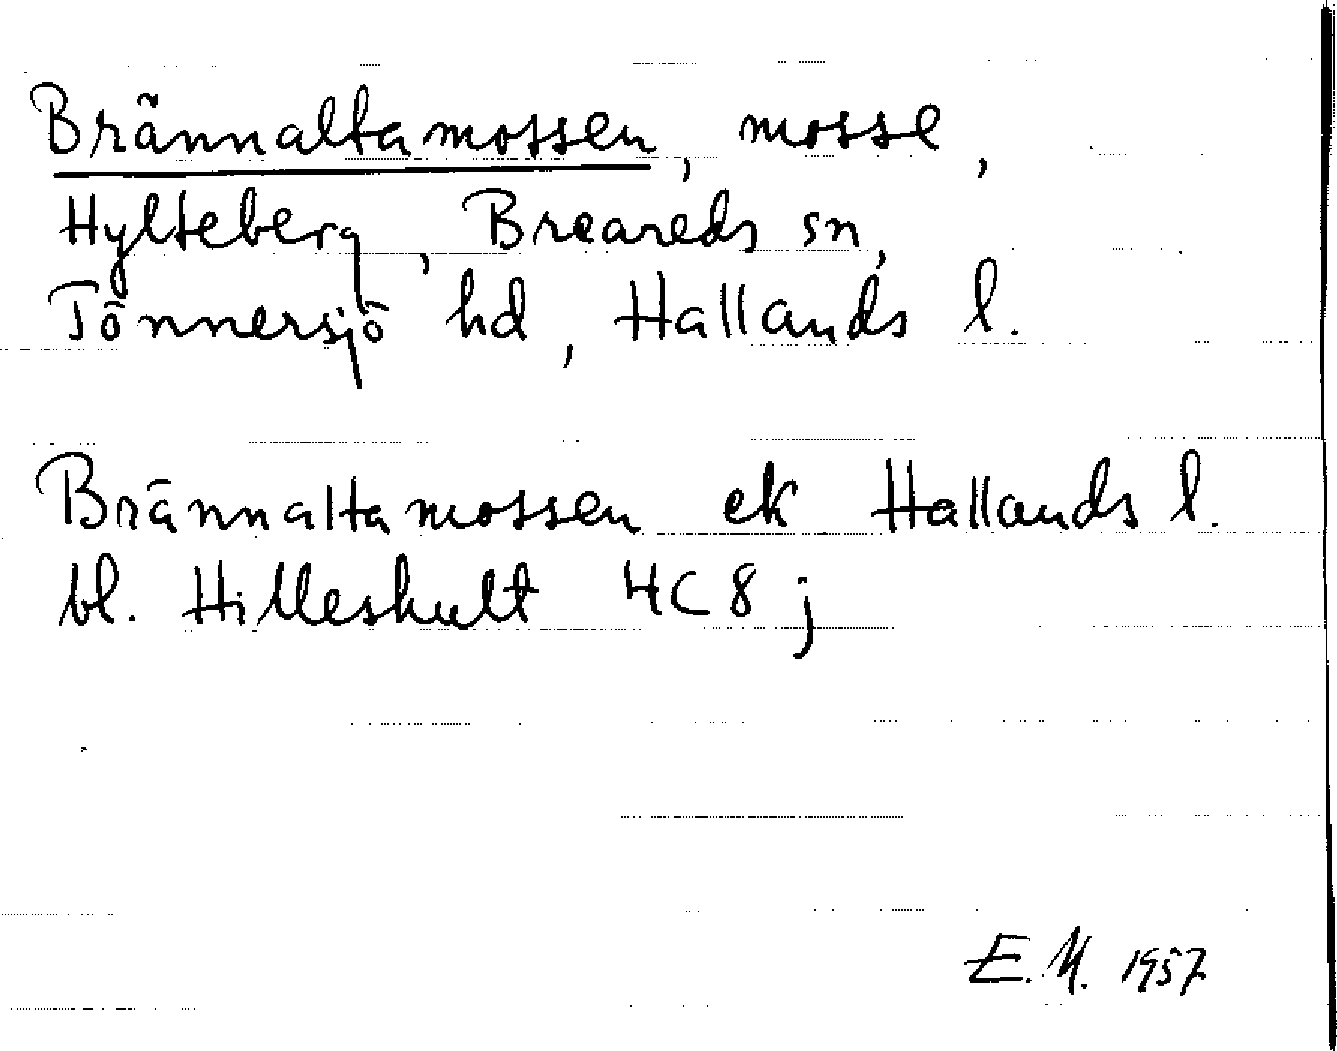 Brännaltamossen, mosse,
Hylteberg, Breareds sn,
Tönnersjö hd, Hallands l.
Brännaltamossen ek Hallands l.
bl. Hilleshult 4C8j
E.M. 1957